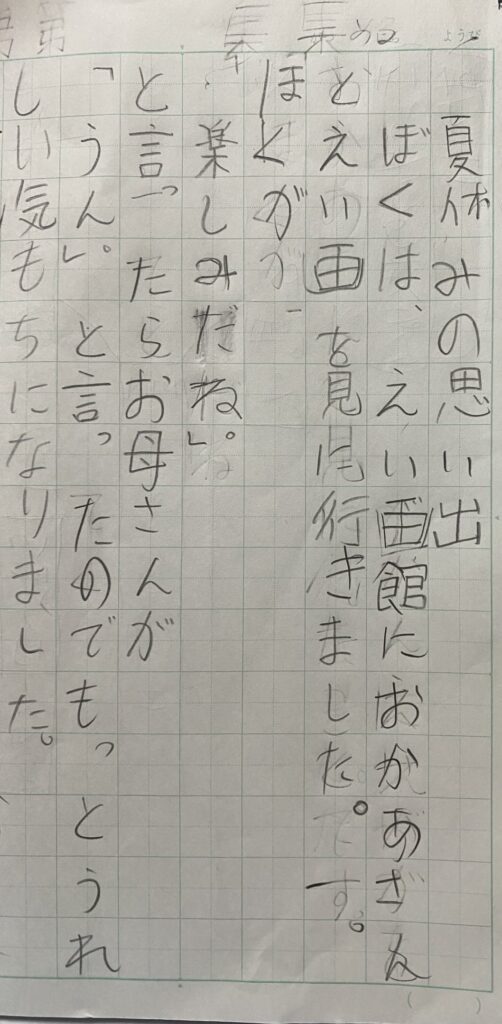 夏休みの思い出
ぼくは、えい画館におかあざん
とえい画を見に行きました。す。
ほくが
楽しみだね」。
と言ったらお母さんが
「うん」。と言ったのでもっとうれ
しい気もちになりました。